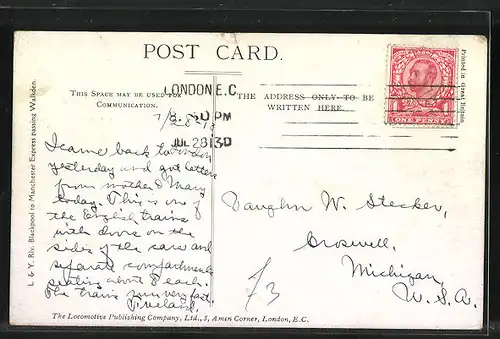 POST CARD.
THIS SPACE MAY BE USED FOR
COMMUNICATION.
THE ADDRESS ONLY TO BE
WRITTEN HERE.
LONDON E.C.
PM
JUL 28 13
ONE PENNY
Printed in Great Britain
L & Y. Rly. Blackpool to Manchester Express passing Walkden.
I came back to London
yesterday and got letters
from mother & Mary
today. This is one of
the English trains
with doors on the
sides of the cars and
separate compartments
seating about 8 each.
The trains run very fast.
Vaughn W. Stecker,
Croswell,
Michigan,
U.S.A.
/3
The Locomotive Publishing Company, Ltd., 3, Amen Corner, London, E.C.